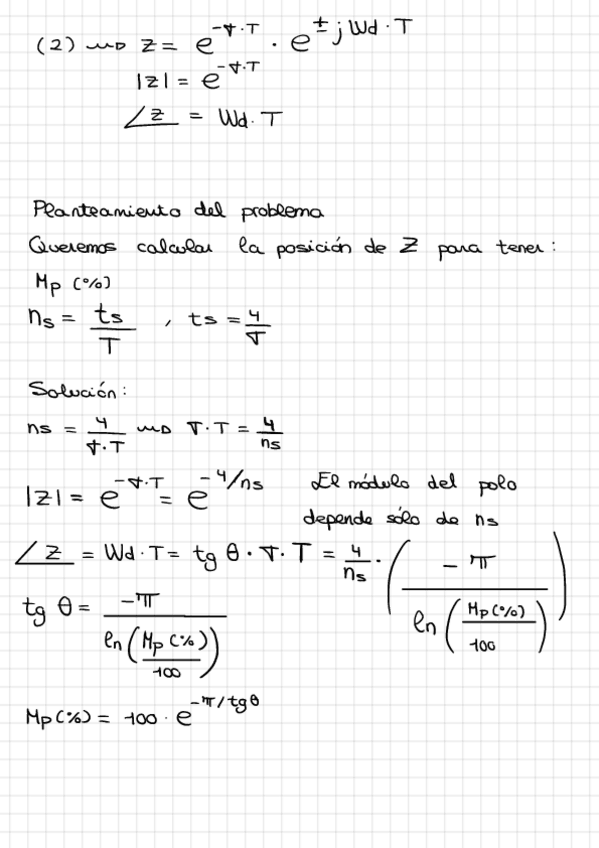 (2) ⇝ Z = e^(-σ·T) · e^(±jWd·T)
|z| = e^(-σ·T)
∠z = Wd·T
Planteamiento del problema
Queremos calcular la posición de Z para tener:
Mp (%)
ns = ts/T , ts = 4/σ
Solución:
ns = 4/(σ·T) ⇝ σ·T = 4/ns
|z| = e^(-σ·T) = e^(-4/ns) El módulo del polo
depende sólo de ns
∠z = Wd·T = tg θ·σ·T = 4/ns · (-π/ln(Mp(%)/100))
tg θ = -π/ln(Mp(%)/100)
Mp(%) = 100·e^(-π/tgθ)